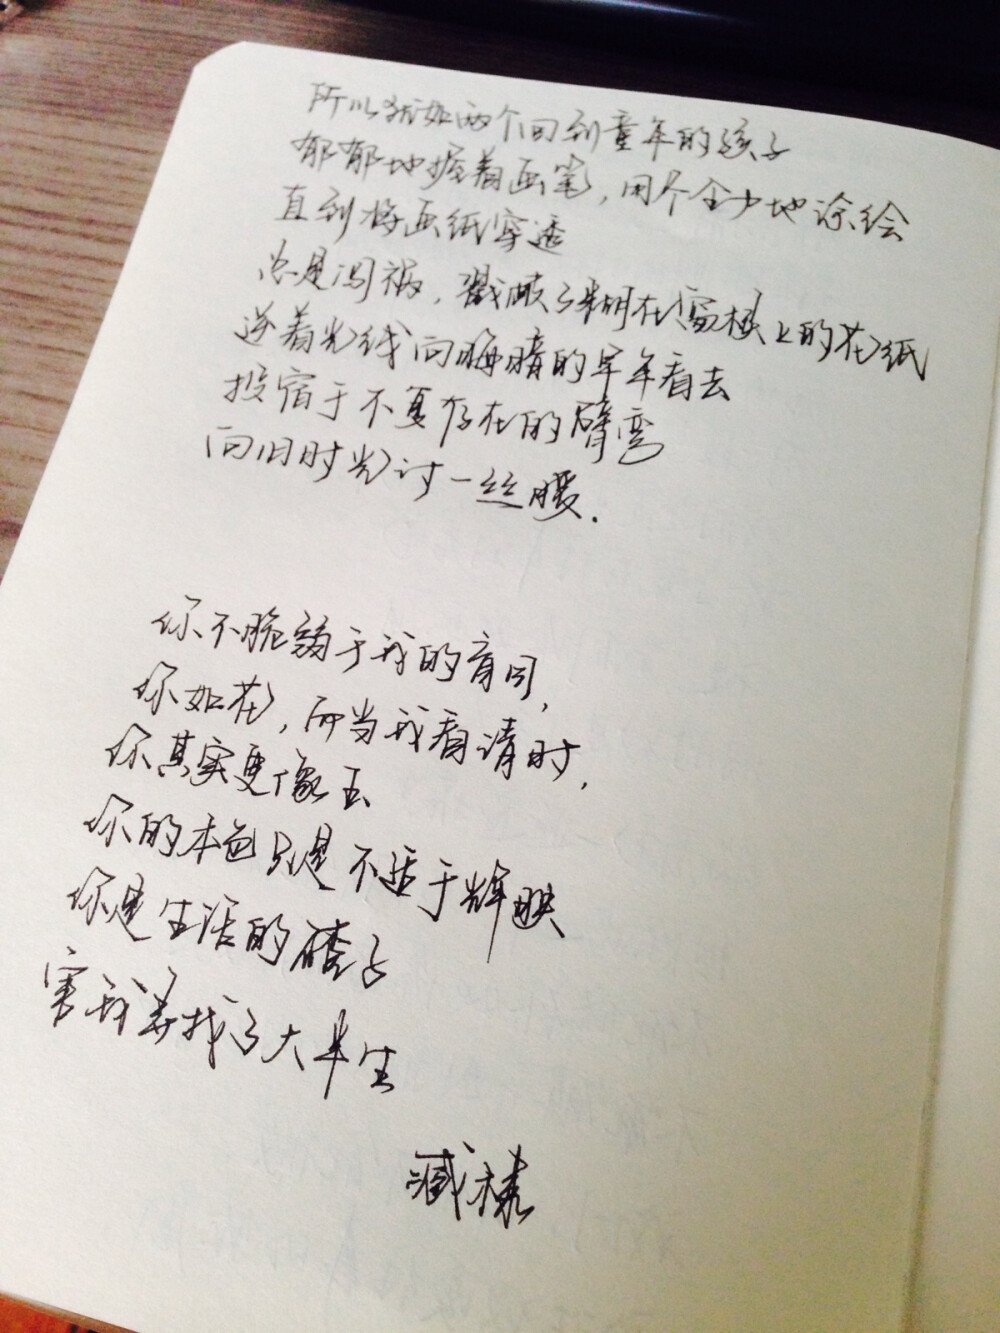 所以犹如两个回到童年的孩子
郁郁地握着画笔，用个全力地涂绘
直到将画纸穿透
总是闯祸，戳破了糊在窗棂上的花纸
逆着光线向晦暗的早年看去
投宿于不复存在的臂弯
向旧时光讨一丝暖.
你不脆弱于我的盲目，
你如花，而当我看清时，
你其实更像玉
你的本色只是不适于辉映
你是生活的碴子
害我寻找了大半生
臧棣